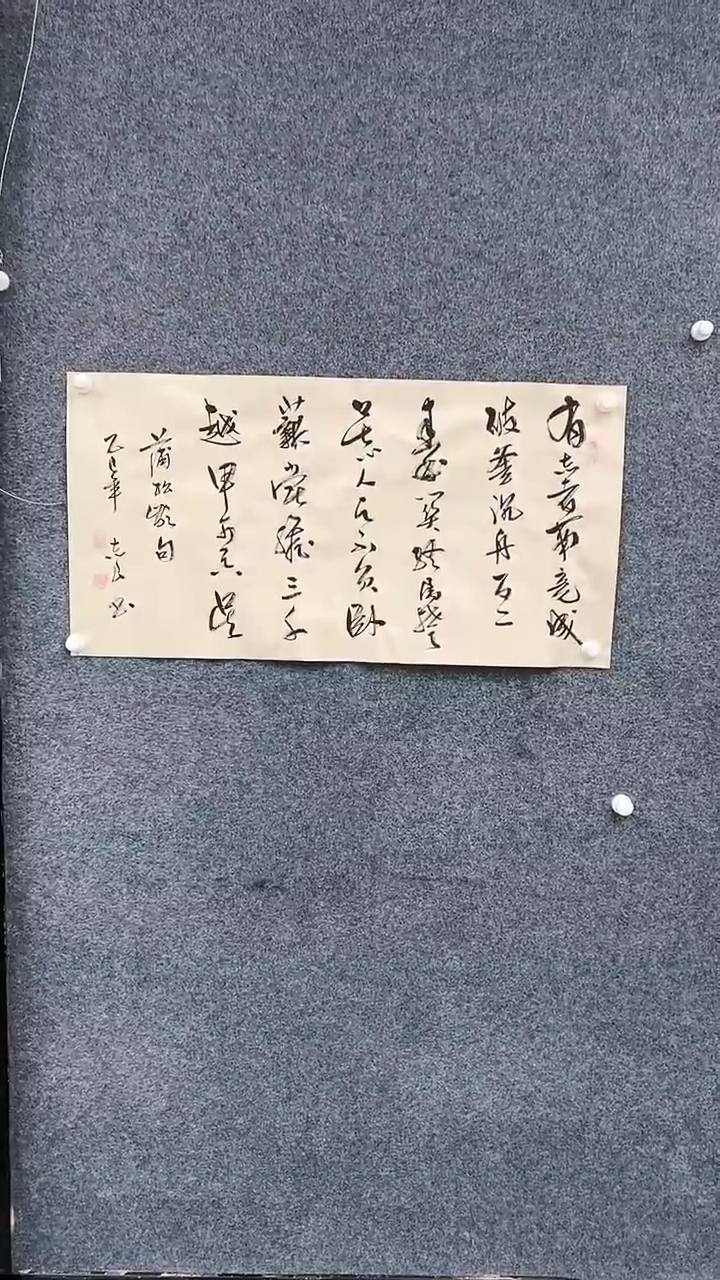 有志者事竟成
破釜沉舟百二
秦關終属楚
苦心人天不負卧
薪嘗膽三千
越甲可吞吴
蒲松齡句
乙巳年 志 书